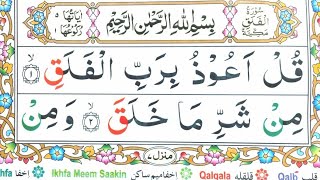 سُورَةُ الْفَلَقِ مَكِّيَّةٌ بِسْمِ اللّٰهِ الرَّحْمٰنِ الرَّحِيْمِ اٰيَاتُهَا ٥ رُكُوْعُهَا ١
قُلْ اَعُوْذُ بِرَبِّ الْفَلَقِ ۙ‏ ١
مِنْ شَرِّ مَا خَلَقَ ۙ‏ ٢ وَمِنْ
منزل ٧
hfa اخفا Ikhfa Meem Saakin اخفامیم ساکن Qalqala قلقله Qalb قلب